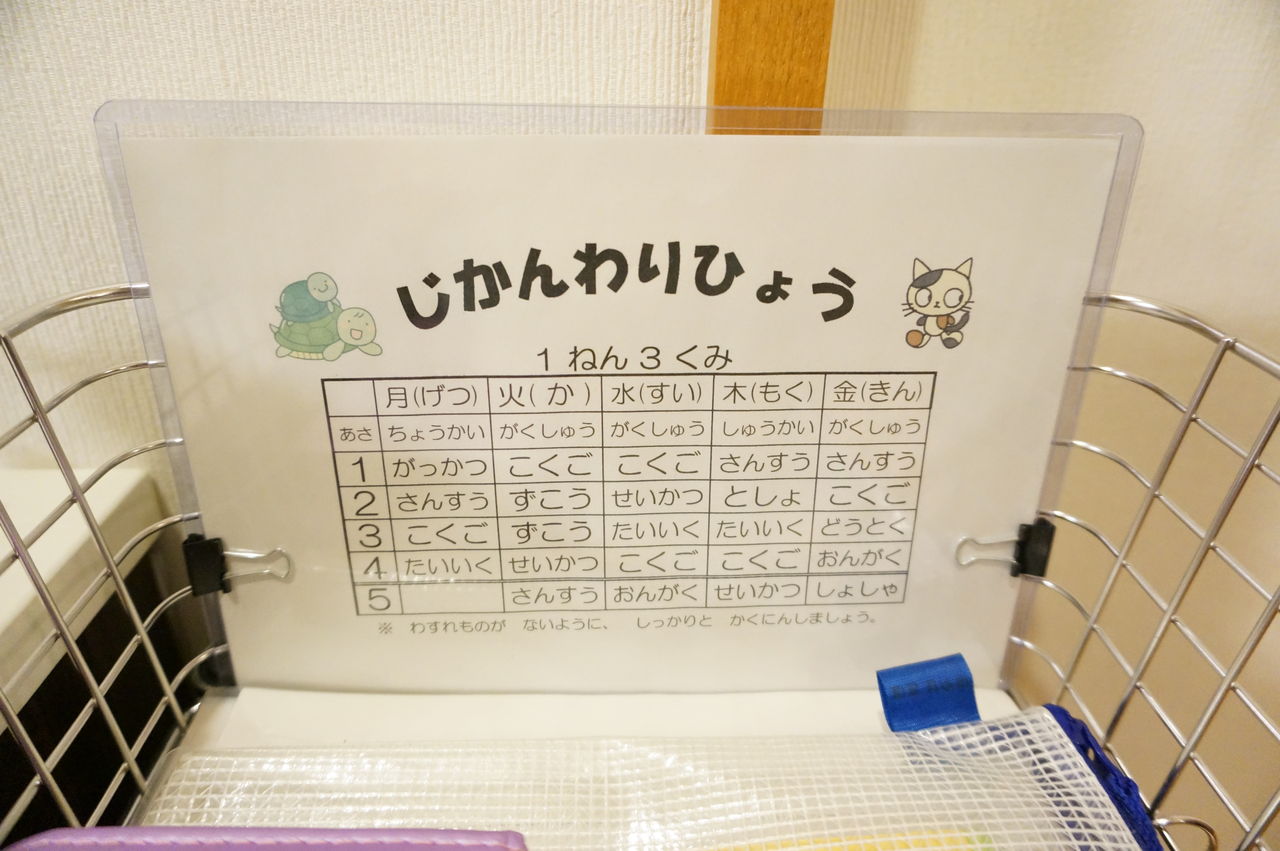 じかんわりひょう
1 ねん 3 くみ
月(げつ) 火( か ) 水(すい) 木(もく) 金(きん)
あさ ちょうかい がくしゅう がくしゅう しゅうかい がくしゅう
1 がっかつ こくご こくご さんすう さんすう
2 さんすう ずこう せいかつ としょ こくご
3 こくご ずこう たいいく たいいく どうとく
4 たいいく せいかつ こくご こくご おんがく
5 さんすう おんがく せいかつ しょしゃ
※ わすれものが ないように、 しっかりと かくにんしましょう。